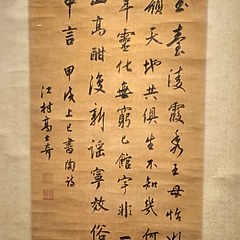 玉臺凌霞秀王母怡妙
顏天地共俱生不知幾何
年靈化無窮已館宇非一
山高酣發新謠寧效俗
中言 甲戌上巳書陶詩
江村高士奇